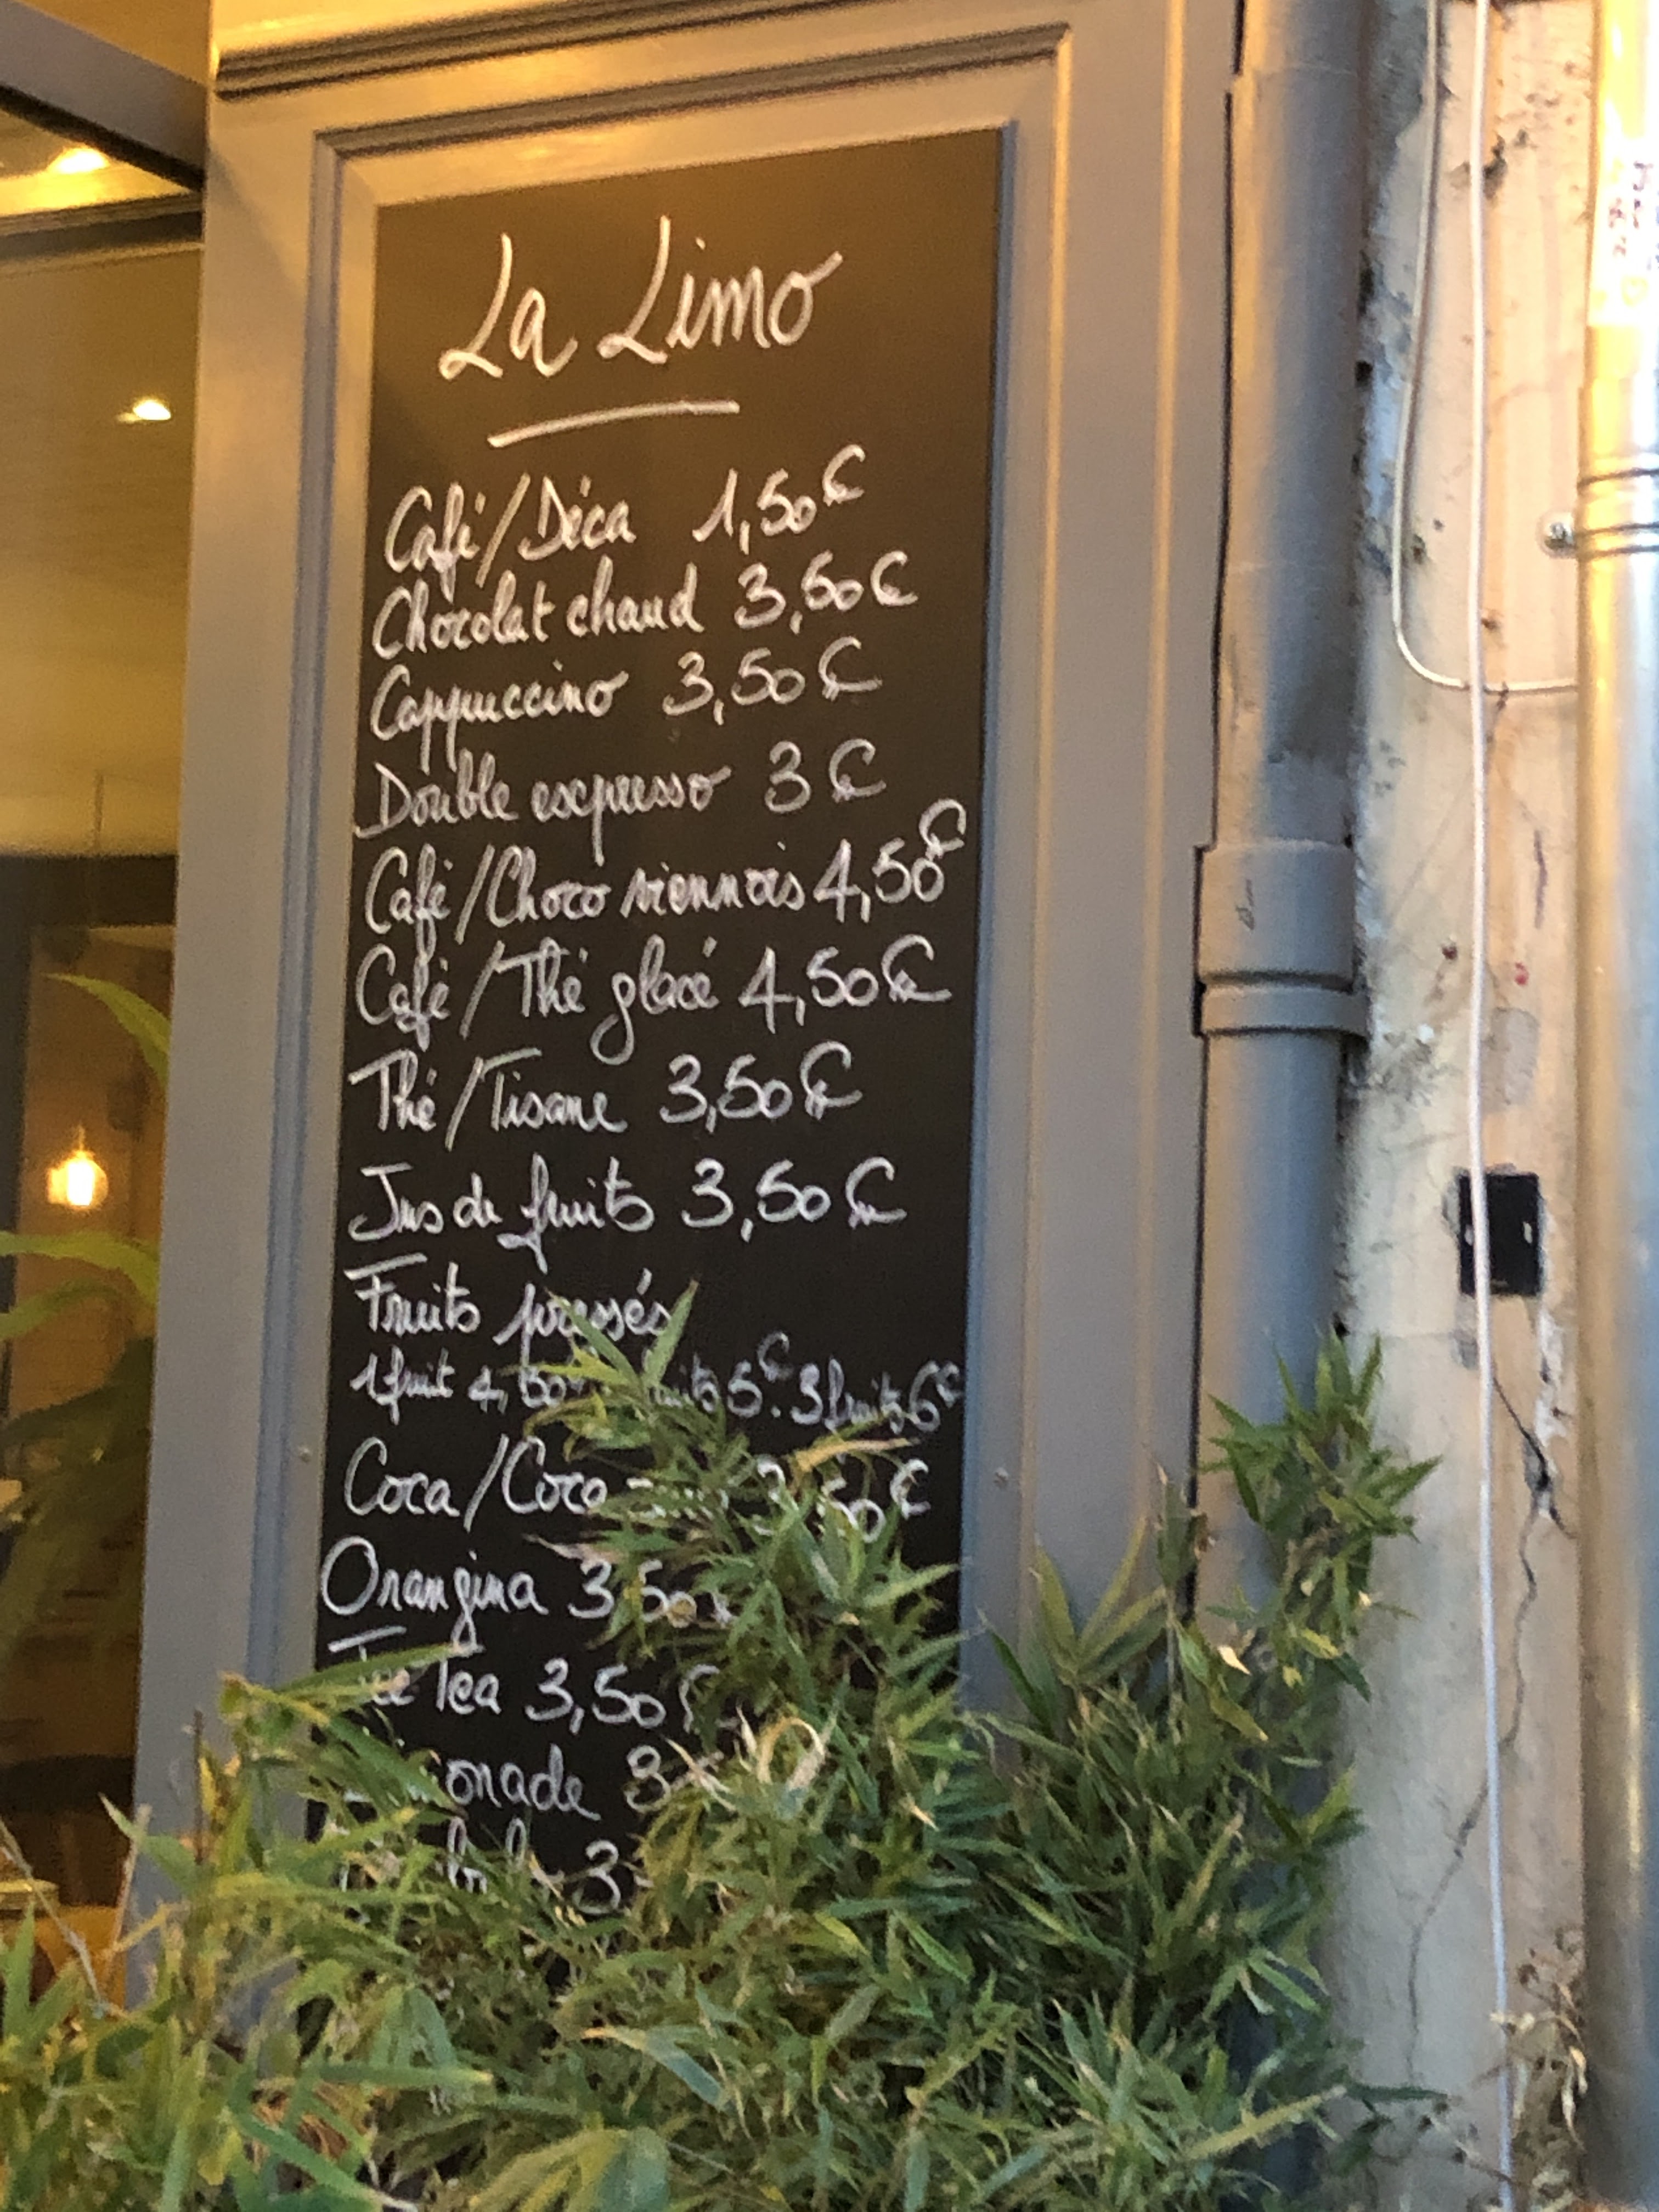 La Limo
Café/Déca 1,50€
Chocolat chaud 3,50€
Cappuccino 3,50€
Double expresso 3€
Café/Choco viennois 4,50€
Café/Thé glacé 4,50€
Thé/Tisane 3,50€
Jus de fruits 3,50€
Fruits pressés
1 fruit 4,50 5€. 3 fruits 6€
Coca/Coca 3,50€
Orangina 3,50€
Ice Tea 3,50€
3
3